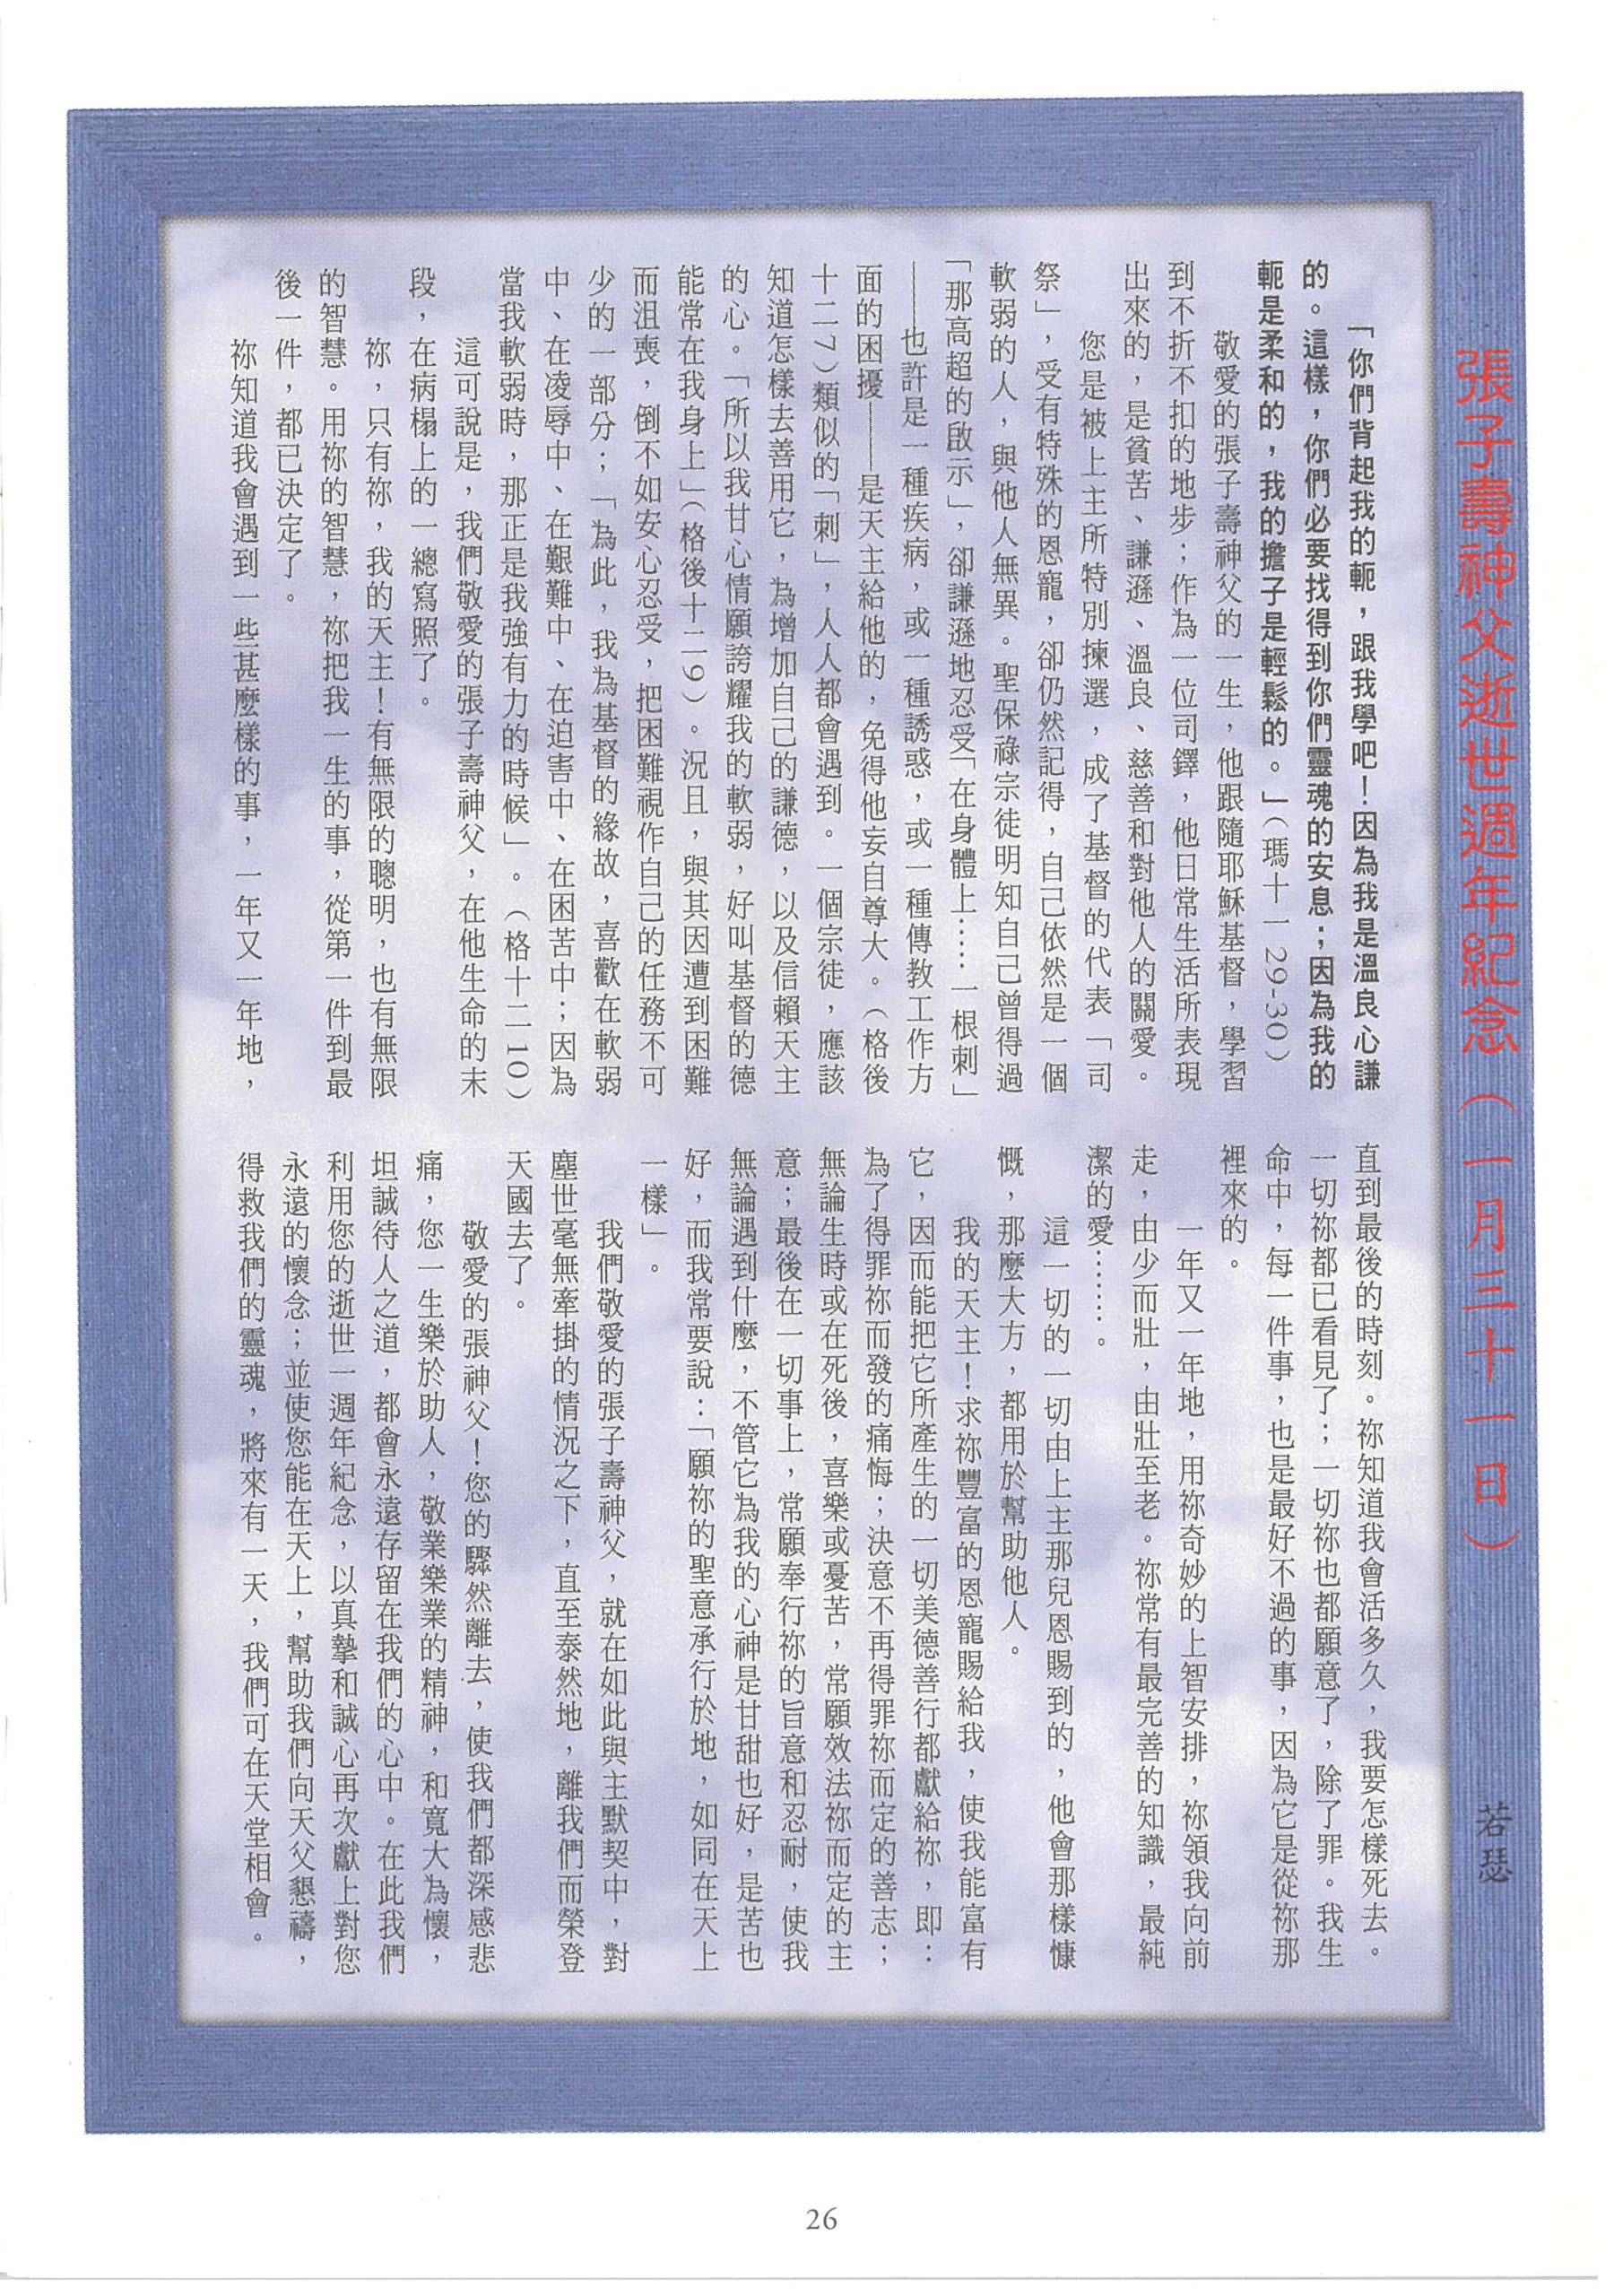 張子壽神父逝世週年紀念(一月三十一日)
若瑟
「你們背起我的軛，跟我學吧！因為我是溫良心謙
的。這樣，你們必要找得到你們靈魂的安息；因為我的
軛是柔和的，我的擔子是輕鬆的。」(瑪十一29-30)
敬愛的張子壽神父的一生，他跟隨耶穌基督，學習
到不折不扣的地步；作為一位司鐸，他日常生活所表現
出來的，是貧苦、謙遜、溫良、慈善和對他人的關愛。
您是被上主所特別揀選，成了基督的代表「司
祭」，受有特殊的恩寵，卻仍然記得，自己依然是一個
軟弱的人，與他人無異。聖保祿宗徒明知自己曾得過
「那高超的啟示」，卻謙遜地忍受「在身體上……一根刺」
——也許是一種疾病，或一種誘惑，或一種傳教工作方
面的困擾——是天主給他的，免得他妄自尊大。(格後
十二7)類似的「刺」，人人都會遇到。一個宗徒，應該
知道怎樣去善用它，為增加自己的謙德，以及信賴天主
的心。「所以我甘心情願誇耀我的軟弱，好叫基督的德
能常在我身上」(格後十二9)。況且，與其因遭到困難
而沮喪，倒不如安心忍受，把困難視作自己的任務不可
少的一部分；「為此，我為基督的緣故，喜歡在軟弱
中、在凌辱中、在艱難中、在迫害中、在困苦中；因為
當我軟弱時，那正是我強有力的時候」。(格十二10)
這可說是，我們敬愛的張子壽神父，在他生命的末
段，在病榻上的一總寫照了。
祢，只有祢，我的天主！有無限的聰明，也有無限
的智慧。用祢的智慧，祢把我一生的事，從第一件到最
後一件，都已決定了。
祢知道我會遇到一些甚麼樣的事，一年又一年地，
直到最後的時刻。祢知道我會活多久，我要怎樣死去。
一切祢都已看見了；一切祢也都願意了，除了罪。我生
命中，每一件事，也是最好不過的事，因為它是從祢那
裡來的。
一年又一年地，用祢奇妙的上智安排，祢領我向前
走，由少而壯，由壯至老。祢常有最完善的知識，最純
潔的愛……。
這一切的一切由上主那兒恩賜到的，他會那樣慷
慨，那麼大方，都用於幫助他人。
我的天主！求祢豐富的恩寵賜給我，使我能富有
它，因而能把它所產生的一切美德善行都獻給祢，即：
為了得罪祢而發的痛悔；決意不再得罪祢而定的善志；
無論生時或在死後，喜樂或憂苦，常願效法祢而定的主
意；最後在一切事上，常願奉行祢的旨意和忍耐，使我
無論遇到什麼，不管它為我的心神是甘甜也好，是苦也
好，而我常要說：「願祢的聖意承行於地，如同在天上
一樣」。
我們敬愛的張子壽神父，就在如此與主默契中，對
塵世毫無牽掛的情況之下，直至泰然地，離我們而榮登
天國去了。
敬愛的張神父！您的驟然離去，使我們都深感悲
痛，您一生樂於助人，敬業樂業的精神，和寬大為懷，
坦誠待人之道，都會永遠存留在我們的心中。在此我們
利用您的逝世一週年紀念，以真摯和誠心再次獻上對您
永遠的懷念；並使您能在天上，幫助我們向天父懇禱，
得救我們的靈魂，將來有一天，我們可在天堂相會。
26